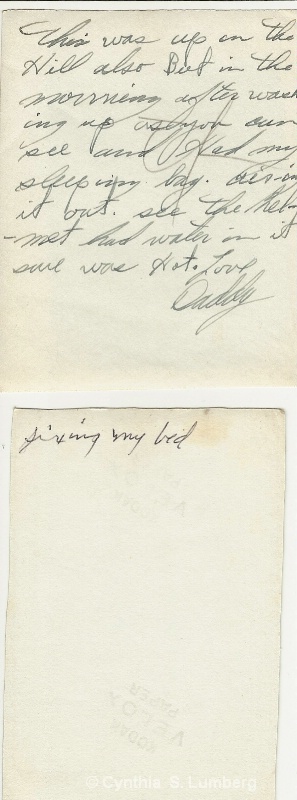 This was up in the
Hill also But in the
morning after wash
ing up as you can
see and Had my
sleeping bag. airing
it out. see the Hel-
-met had water in it
sure was Hot. Love
Daddy
fixing my bed
KODAK
VELOX
PAPER
© Cynthia S. Lumberg